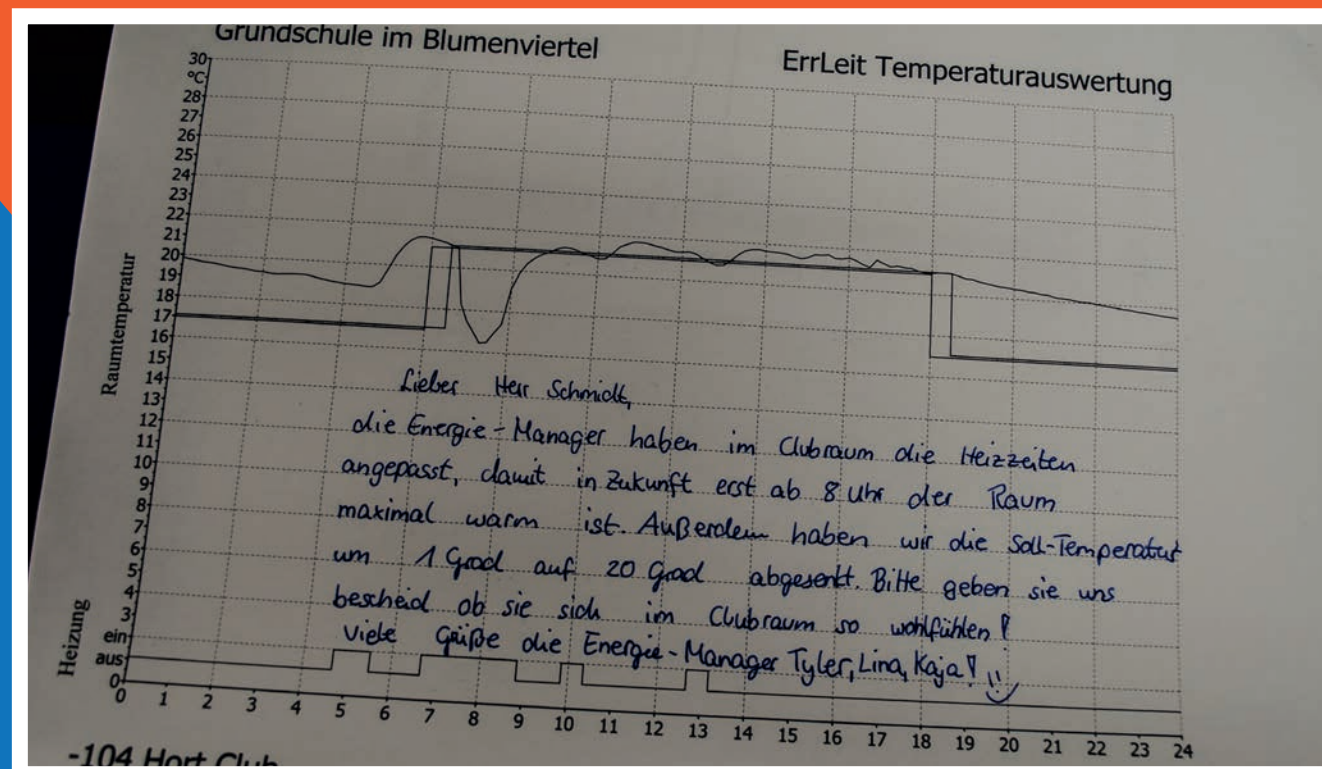 Grundschule im Blumenviertel
ErrLeit Temperaturauswertung
30
°C
28
27
26
25
24
23
22
21
20
19
18
17
16
15
14
13
12
11
10
9
8
7
6
5
4
3
ein
aus
0
Raumtemperatur
Heizung
Lieber Herr Schmidt,
die Energie-Manager haben im Clubraum die Heizzeiten
angepasst, damit in Zukunft erst ab 8 Uhr der Raum
maximal warm ist. Außerdem haben wir die Soll-Temperatur
um 1 Grad auf 20 Grad abgesenkt. Bitte geben sie uns
bescheid ob sie sich im Clubraum so wohlfühlen!
Viele Grüße die Energie-Manager Tyler, Lina, Kaja!
0 1 2 3 4 5 6 7 8 9 10 11 12 13 14 15 16 17 18 19 20 21 22 23 24
-104 Hort Club